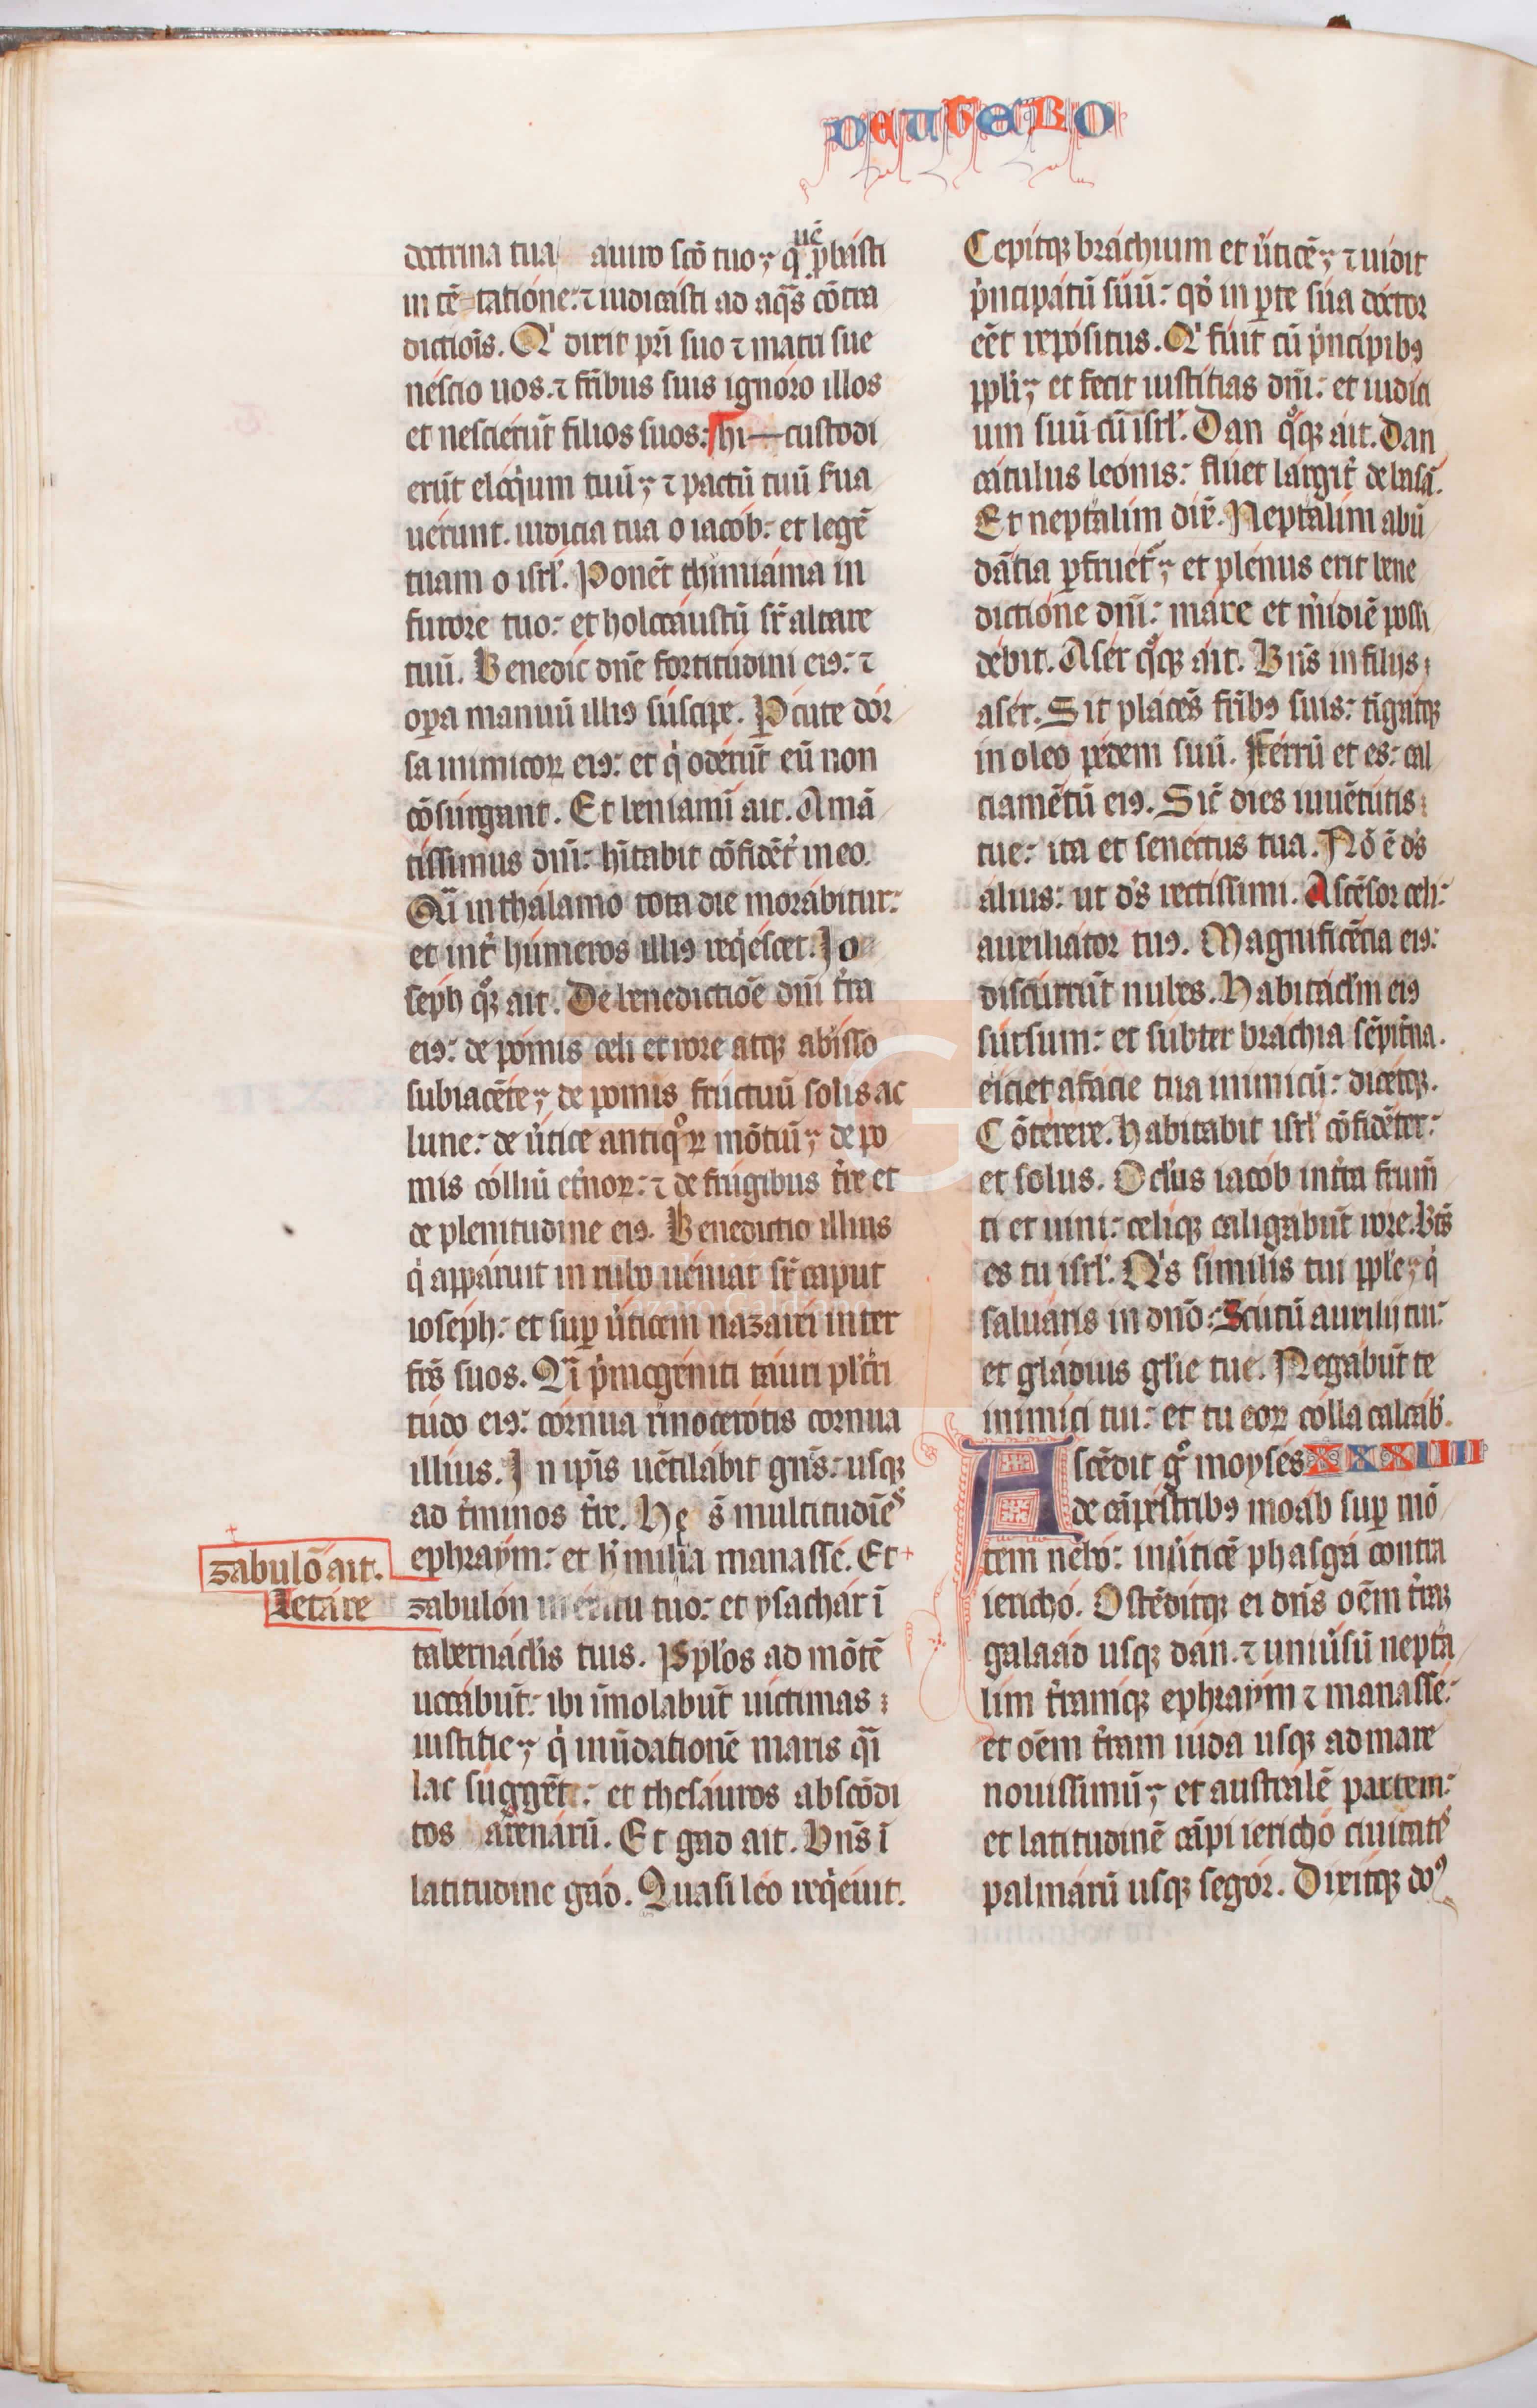 DEUTERO
doctrina tua uiro scō tuoꝫ quē ꝓbasti
in tētatione: ⁊ iudicasti ad aqͣs cōtra
dictiōis. Qͥ dixit pr̄i suo ⁊ matri sue
nescio uos. ⁊ fr̄ibus suis ignoro illos
et nescierūt filios suos: hi custodi
erūt eloqͥum tuūꝫ ⁊ pactū tuū ẜua
uerunt. iudicia tua o iacob: et legē
tuam o isrł. Ponēt thimiama in
furore tuo: et holocaustū sr̄ altare
tuū. Benedic dn̄e fortitudini eiꝰ: ⁊
oꝑa manuū illiꝰ suscipe. Pͨcute dor
sa inimicoꝝ eiꝰ: et qͥ oderūt eū non
cōsurgant. Et beniamī ait. Amā
tissimus dn̄i: hītabit cōfidēt̉ in eo.
Qͣi in thalamo tota die morabitur:
et int̉ humeros illiꝰ reqͥescet. Jo
seph qͦꝫ ait. De benedictiōe dn̄i t̉ra
eiꝰ: de pomis celi et rore atqꝫ abisso
subiacēteꝫ de pomis fructuū solis ac
lune: de ủtice antiqͦꝝ mōtiūꝫ de po
mis colliū et̉noꝝ: ⁊ de frugibus t̉re et
de plenitudine eiꝰ. Benedictio illius
qͥ apparuit in rubo ueniat sr̄ caput
ioseph: et suꝑ ủticem nazarei inter
fr̄s suos. Qͣi pͥmogeniti tauri pl̓cri
tudo eiꝰ: cornua rinocerotis cornua
illius. In ip̄is uētilabit gn̄s: usqꝫ
ad t̉minos t̉re. He s̄ multitudiēs
ephraym: et h̓ milia manasse. Et
zabulō ait.
Letare
zabulon in exitu tuo: et ysachar ī
tabernacl̓is tuis. Ppl̓os ad mōtē
uocabūt: ibi īmolabūt uictimas
iustitieꝫ qͥ inūdationē maris qͣi
lac suggēt: et thesauros abscōdi
tos arenarū. Et gad ait. Bn̄s ī
latitudine gad. Quasi leo reqͥeuit.
Cepitqꝫ brachium et ủticēꝫ ⁊ uidit
pͥncipatū suū: qͦd in ꝑte sua doctor
eēt repositus. Qͥ fuit cū pͥncipibꝰ
ppl̓iꝫ et fecit iustitias dn̄i: et iudici
um suū cū isrł. Dan qͦqꝫ ait. Dan
catulus leonis: fluet largit̉ de basā.
Et neptalim dix̄. Neptalim abū
dātia ꝑfruet᷑ꝫ et plenus erit bene
dictione dn̄i: mare et m̉idiē possi
debit. Aser qͦqꝫ ait. Bn̄s in filijs
aser. Sit placēs fr̄ibꝰ suis: tīgatqꝫ
in oleo pedem suū. Ferrū et es: cal
ciamētū eiꝰ. Sic̄ dies iuuētutis
tue: ita et senectus tua. Nō ē d̓s
alius: ut d̓s rectissimi. Ascēsor celi:
auxiliator tuꝰ. Magnificētia eiꝰ:
discurrūt nubes. Habitacl̓m eiꝰ
sursum: et subter brachia sēpit̉na.
eiciet a facie tua inimicū: dicetqꝫ.
Cōterere. Habitabit isrł cōfidēter:
et solus. Ocl̓us iacob in t̉ra frum̄
ti et uini: celiqꝫ caligabūt rore. Bt̄s
es tu isrł. Qͥs similis tui ppl̓eꝫ qͥ
saluaris in dn̄o: Scutū auxilij tui:
et gladius gl̓ie tue. Negabūt te
inimici tui: et tu eoꝝ colla calcab̓.
Ascēdit gͦ moyses XXXIIII
de cāpestribꝰ moab suꝑ mō
tem nebo: in ủticē phasga contra
iericho. Ostēditqꝫ ei dn̄s oēm t̉rā
galaad usqꝫ dan. ⁊ uniủsū nepta
lim t̉ramqꝫ ephraym ⁊ manasse:
et oēm t̉ram iuda usqꝫ ad mare
nouissimūꝫ et australē partem:
et latitudinē cāpi iericho ciuitatꝭ
palmarū usqꝫ segor. Dixitqꝫ do